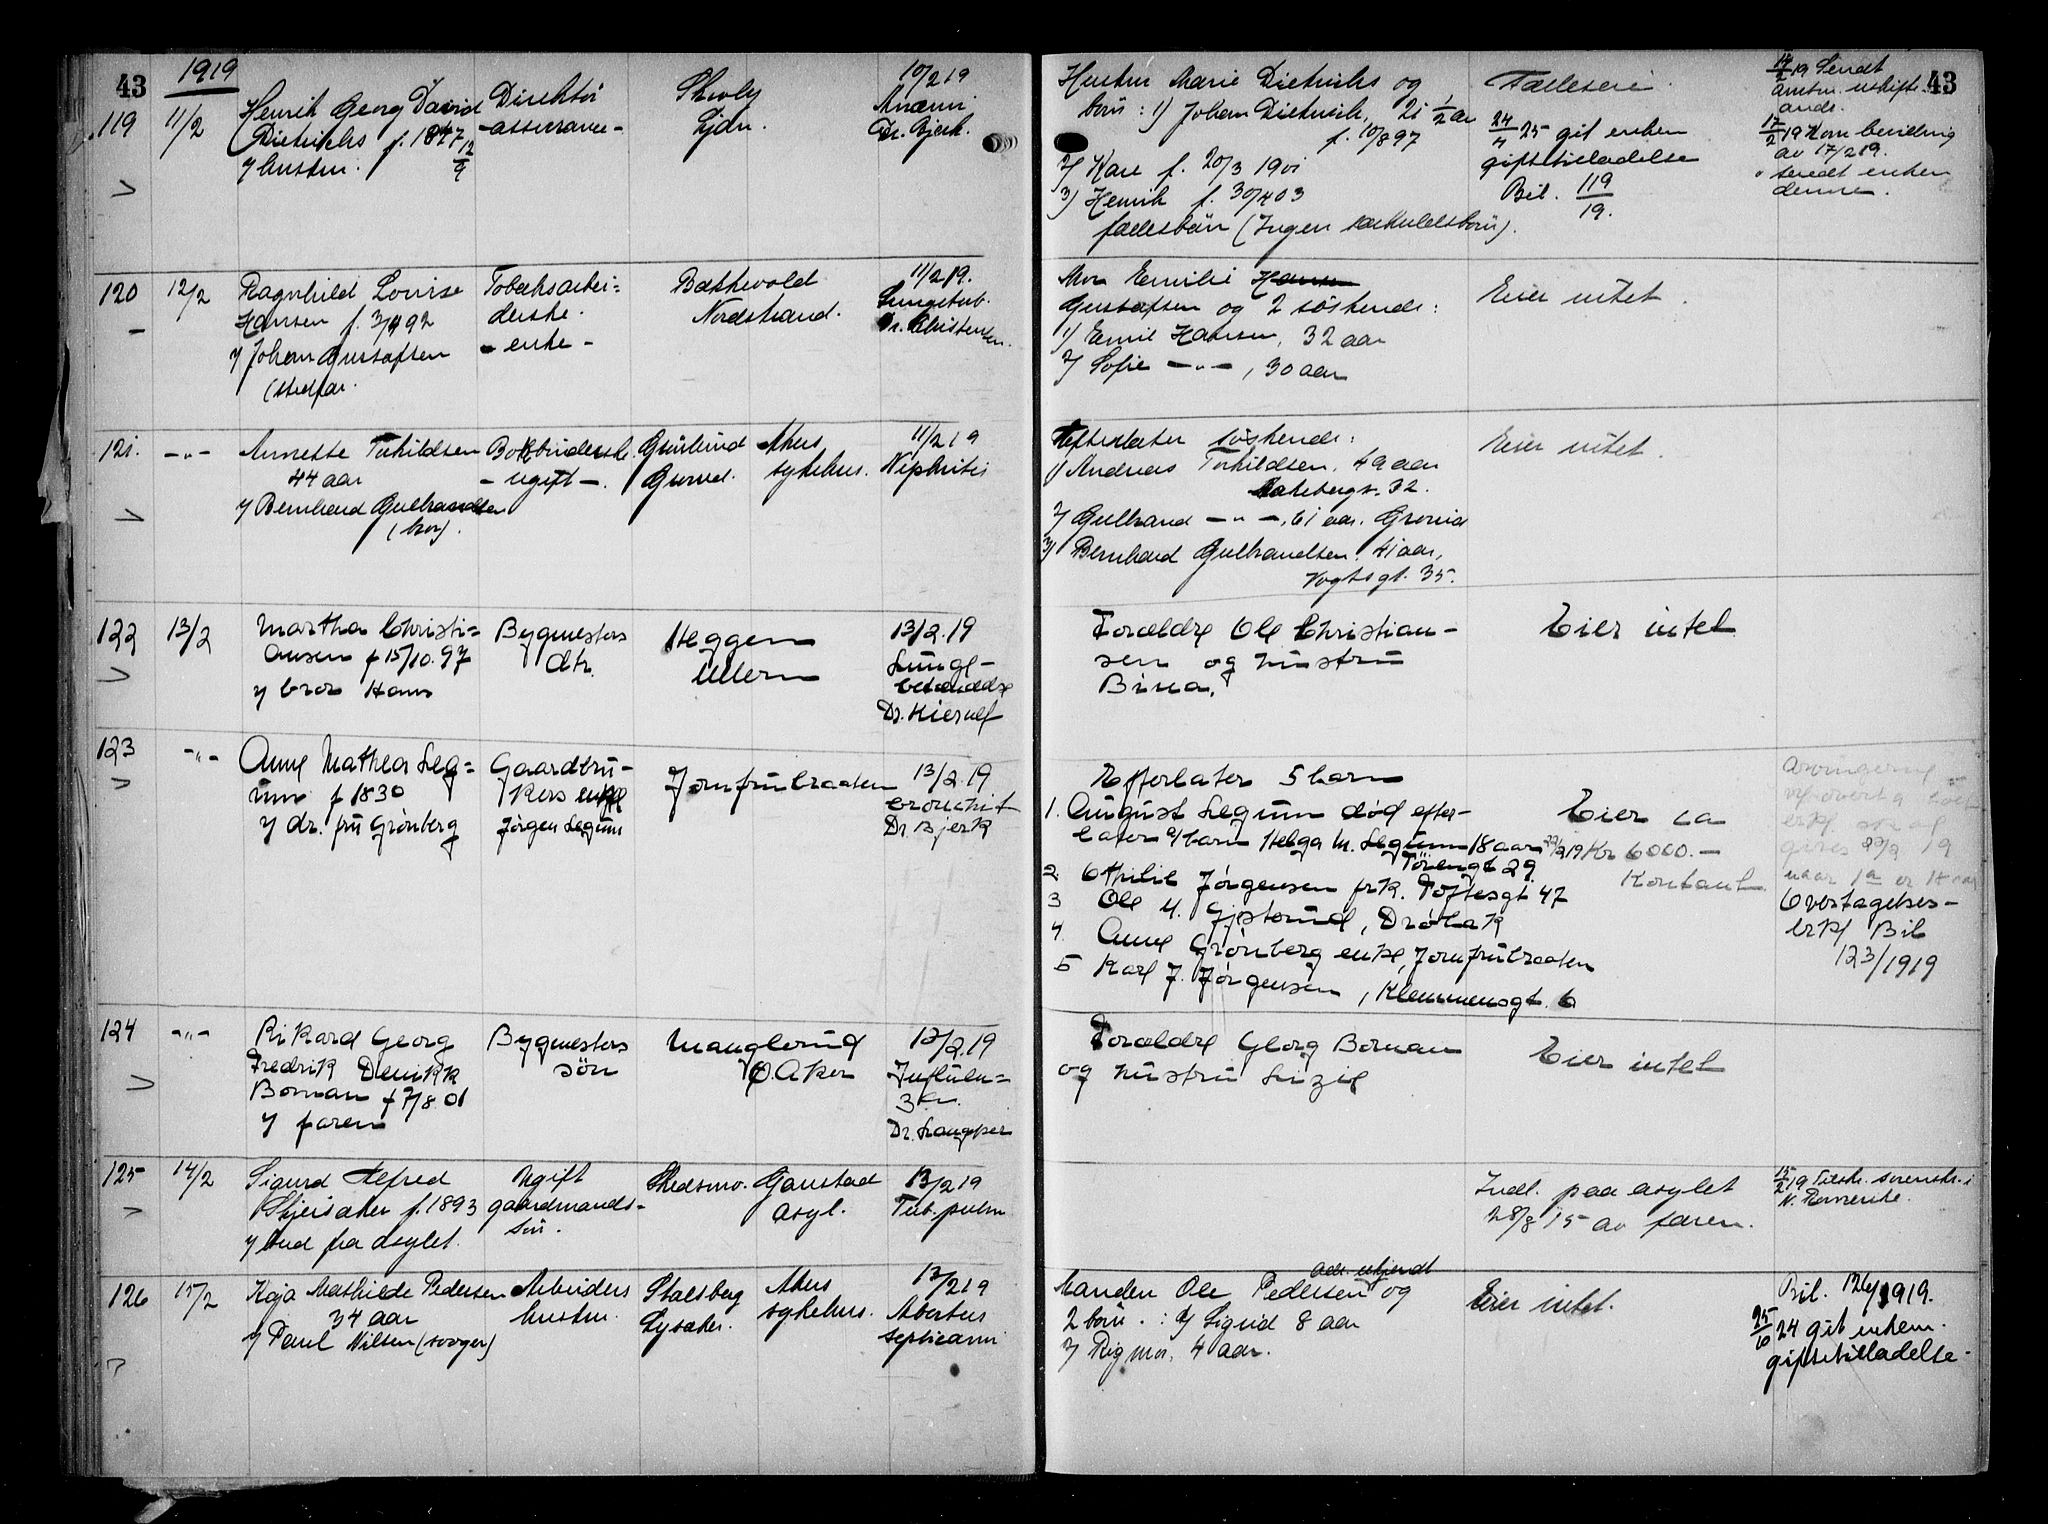 43
1919
119
11/2
Henrik Georg David
Dietrichs f. 1847 12/9
v/ hustru.
Direktör
- assurance -
Skovly
Ljan.
10/2 19
Anæmi
Dr. Bjerk.
Hustru Marie Dietrichs og
börn : 1) Johan Dietrich, 21 1/2 aar
f. 10/8 97
2) Kare f. 20/3 1901
3) Henrik f. 30/4 03
fællesbörn (Ingen særkuldsbörn).
Fælleseie.
24/4 25 git enken
giftetilladelse
Bil. 119/19.
14/2 19 Sendt
amtm. uskifte
ande.
17/2 19 Kom bevilling
av 17/2 19.
sendt enken
denne.
43
120
12/2
Ragnhild Lovise
Hansen f. 3/4 92
v/ Johan Gustafsen
(stedfar.
Tobaksarbei=
derske.
- enke -
Bækkevold
Nordstrand.
11/2 19.
Lungetub.
Dr. Christensen.
Mor Emilie Hansen
Gustafsen og 2 söskende:
1) Emil Hansen, 32 aar
2) Sofie -"-, 30 aar
Eier intet.
121.
-"-
Annette Torkildsen
44 aar
v/ Bernhard Gulbrandsen
(bror).
Bokbinderske.
- ugift -.
Grorud.
Akers
sykehus.
11/2 19
Nephritis
Efterlater söskende:
1) Andreas Torkildsen, 49 aar
32.
2) Gulbrand -"-, 61 aar. Grorud
3) Bernhard Gulbrandsen, 41 aar,
Vogtsgt. 35.
Eier intet.
122
13/2
Martha Christi=
ansen f 15/10.97
v/ bror Hans
Bygmesters
dtr.
Heggen
Ullern
13/2.19
Lunge-
betændelse
Dr. Kierulf
Forældre Ole Christian-
sen og hustru
Bina.
Eier intet
123
-"-
Anne Mathea Leg=
um f 1830
v/ dr. fru Grønberg
Gaardbru-
kers enke
Jørgen Legum
Jomfrubraaten
13/2.19
bronchit
Dr. Bjerk
Efterlater 5 barn
1. August Legum død efter-
later 1 barn Helga M. Legum 18 aar 22/2 19
29
2. Othilie Jørgensen frk. Toftesgt 47
3 Ole H. Gjøterud, Drøbak
4. Anne Grønberg enke, Jomfrubraaten
5 Karl J. Jørgensen, Klemmensgt. 6
Eier ca
Kr 6000.-
Kontant
Arvingerne
19
naar
Overtagelses-
erkl Bil
123/1919
124
-"-
Rikard Georg
Fredrik Denikk
Borman f 7/8.01
v/ faren
Bygmesters
sön
Manglerud
Ø. Aker
13/2.19
Influen=
za.
Dr. Langker
Forældre Georg Borman
og hustru Lizie
Eier intet
125
14/2
Sigurd Alfred
Skjeisaker f. 1893
v/ bud fra asylet.
Ugift
gaardmands-
sön.
Skedsmo.
Gaustad
asyl.
13/2 19
Tub. pulm
Indl. paa asylet
28/8 15 av faren.
15/2 19 Tilskr. sorenskr. i
N. Romerike.
126
15/2
Kaja Mathilde Pedersen
34 aar
v/ Paul Nilsen (svoger)
Arbeiders
hustru.
Stalsberg
Lysaker.
Akers
sykehus.
13/2 19
Abortus
septicæmi
adr. ukjendt
Manden Ole Pedersen og
2 börn. : 1) Sigrid 8 aar
2) Rigmor, 4 aar.
Eier intet.
Bil. 126/1919.
25/10 24 git enkem.
giftetilladelse.